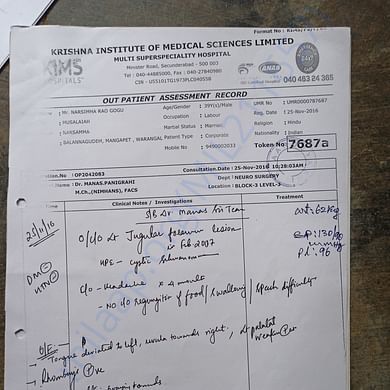 KRISHNA INSTITUTE OF MEDICAL SCIENCES LIMITED
MULTI SUPERSPECIALITY HOSPITAL
Minister Road, Secunderabad - 500 003
Tel : 040-44885000, Fax : 040-27840980
CIN - U55101TG1973PLC040558
KIMS
HOSPITALS
NABL
040 463 24 365
OUT PATIENT ASSESSMENT RECORD
: Mr. NARSIMHA RAO GOGU Age/Gender : 39Y(s)/Male UMR No : UMR0000787687
: MUSALAIAH Occupation : Labour Reg. Date : 25-Nov-2016
: NARSAMMA Marital Status : Married Religion : Hindu
: BALANNAGUDEM, MANGAPET, WARANGAL Patient Type : Corporate Nationality : Indian
Mobile No : 9490002033 Token No: 7687a
No : OP2042083 Consultation : 25-Nov-2016 10:28:03AM
: Dr. MANAS.PANIGRAHI Dept : NEURO SURGERY
M.Ch.,(NIMHANS), FACS Location : BLOCK-3 LEVEL-3
Clinical Notes / Investigations Treatment
S/B Dr Manas Sir Team
25/11/16 wt: 62 kg
O/C/O Lt Jugular foramen lesion
in Feb 2007 BP: 130/90 mmHg
HPE - cystic schwannoma PR: 96
DM
HTN
C/o - Headache x 4 months
- No c/o regurgitation of food / swallowing / speech difficulty
O/E -
- Tongue deviated to left, uvula towards right, Lt palatal
- Rhombergs +ve